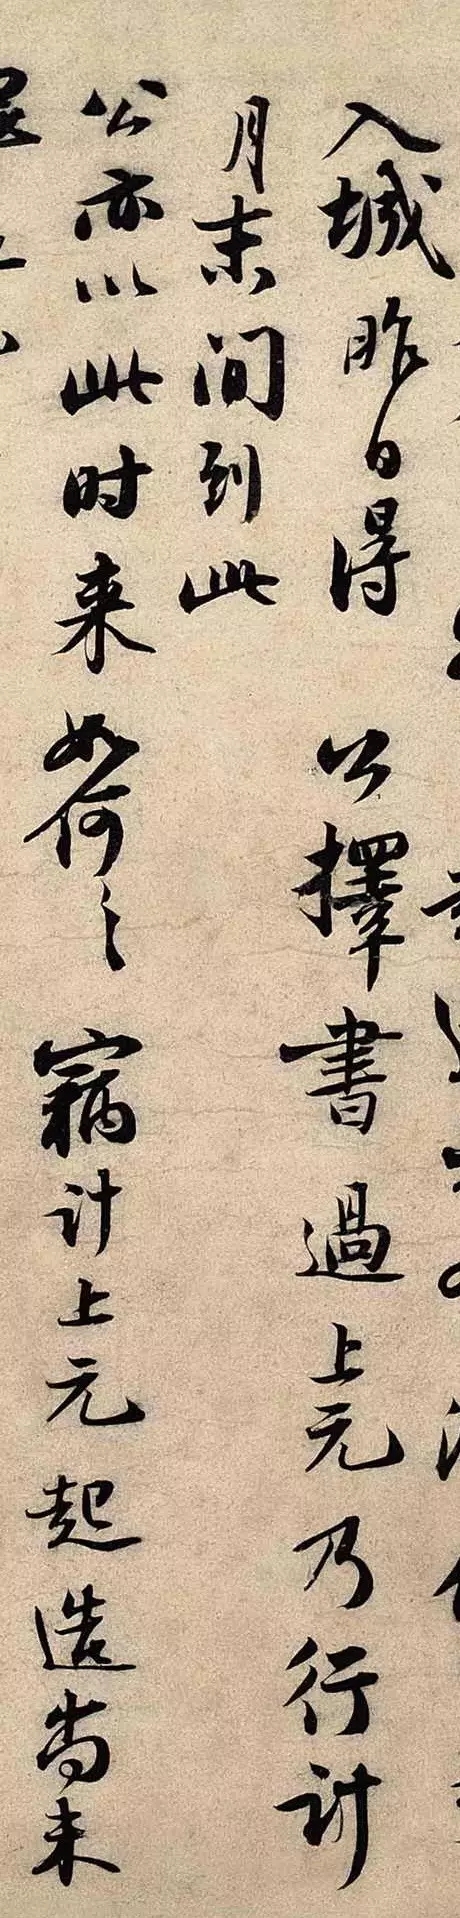 入城昨日得 公擇書過上元乃行計
月末間到此
公亦以此時來如何〻 竊計上元起造尚未